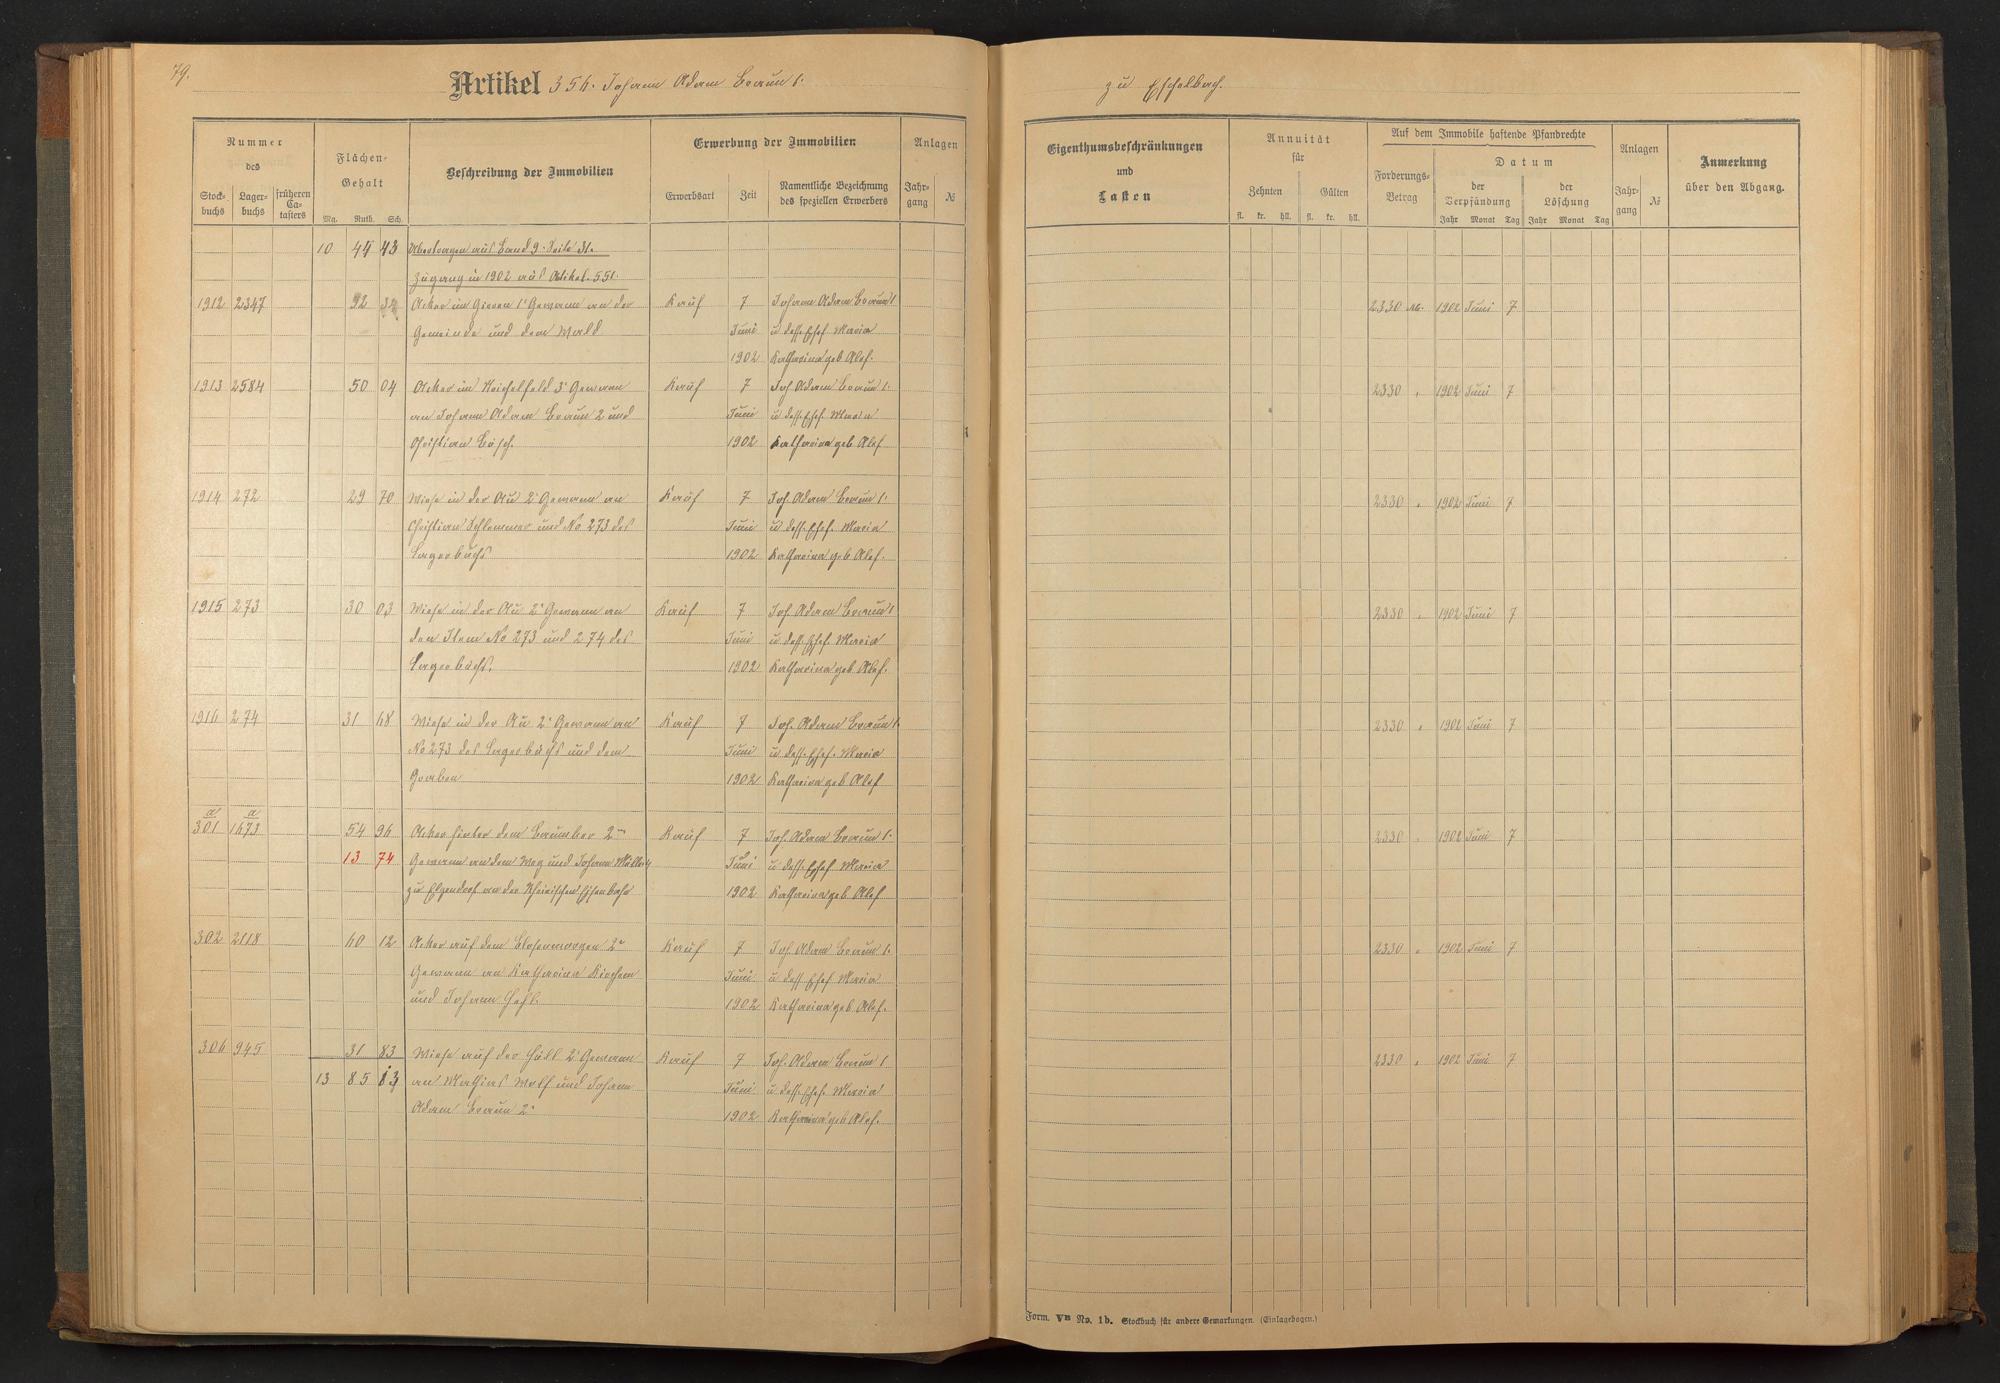 79.
Artikel 356. Johann Adam Braun 1.
Nummer
des
Stock-buchs
Lager-buchs
früheren Ca-tasters
Flächen-
Gehalt
Mg. Ruth. Sch.
Beschreibung der Immobilien
Erwerbung der Immobilien
Erwerbsart
Zeit
Namentliche Bezeichnung
des speziellen Erwerbers
Anlagen
Jahr-gang
№
10 44 43 Übertragen aus Band 9. Seite 31.
Zugang in 1902 aus Artikel 551.
1912 2347 92 Acker im Gieren 1' Gewann an der Kauf 7 Johann Adam Braun 1
Gemeinde und dem Wald Juni u dess. Ehef Maria
1902 Katharina geb Alef.
1913 2584 50 04 Acker im 3' Gewann Kauf 7 Joh Adam Braun 1.
an Johann Adam Braun 2 und Juni u dess. Ehef. Maria
Christian Bösch. 1902 Katharina geb Alef
1914 272 29 70 Wiese in der Au 2' Gewann an Kauf 7 Joh. Adam Braun 1.
Christian Schlemmer und No 273 des Juni u dess. Ehef. Maria
Lagerbuchs 1902 Katharina geb Alef.
1915 273 30 03 Wiese in der Au 2' Gewann an Kauf 7 Joh. Adam Braun 1
den Item No 273 und 274 des Juni u dess. Ehef. Maria
Lagerbuchs. 1902 Katharina geb Alef.
1916 274 31 68 Wiese in der Au 2' Gewann an Kauf 7 Joh. Adam Braun 1.
No 273 des Lagerbuchs und dem Juni u dess. Ehef. Maria
Graben 1902 Katharina geb Alef
a a
301 1673 54 96 Acker hinter dem 2ten Kauf 7 Joh. Adam Braun 1.
13 74 Gewann an dem Weg und Johann Müller Juni u dess. Ehef Maria
zu Elgendorf an der Rheinischen Eisenbahn 1902 Katharina geb Alef
302 2118 60 12 Acker auf dem 2r Kauf 7 Joh. Adam Braun 1.
Gewann an Katharina Kirchem Juni u dess. Ehef Maria
und Johann Hehl. 1902 Katharina geb Alef.
306 945 31 83 Wiese auf der Häll 2' Gewann Kauf 7 Joh. Adam Braun 1
13 85 13 an Mathias Wolf und Johann Juni u dess. Ehef. Maria
Adam Braun 2r 1902 Katharina geb Alef.
zu Eschelbach.
Eigenthumsbeschränkungen
und
Lasten
Annuität
für
Zehnten Gülten
fl. kr. hll. fl. kr. hll.
Auf dem Immobile haftende Pfandrechte
Forderungs-
Betrag
Datum
der Verpfändung
der Löschung
Jahr Monat Tag Jahr Monat Tag
Anlagen
Jahr-gang
№
Anmerkung
über den Abgang.
2330 M. 1902 Juni 7
2330 " 1902 Juni 7
2330 " 1902 Juni 7
2330 " 1902 Juni 7
2330 " 1902 Juni 7
2330 " 1902 Juni 7
2330 " 1902 Juni 7
2330 " 1902 Juni 7
Form. VB No. 1b. Stockbuch für andere Gemarkungen. (Einlagebogen.)